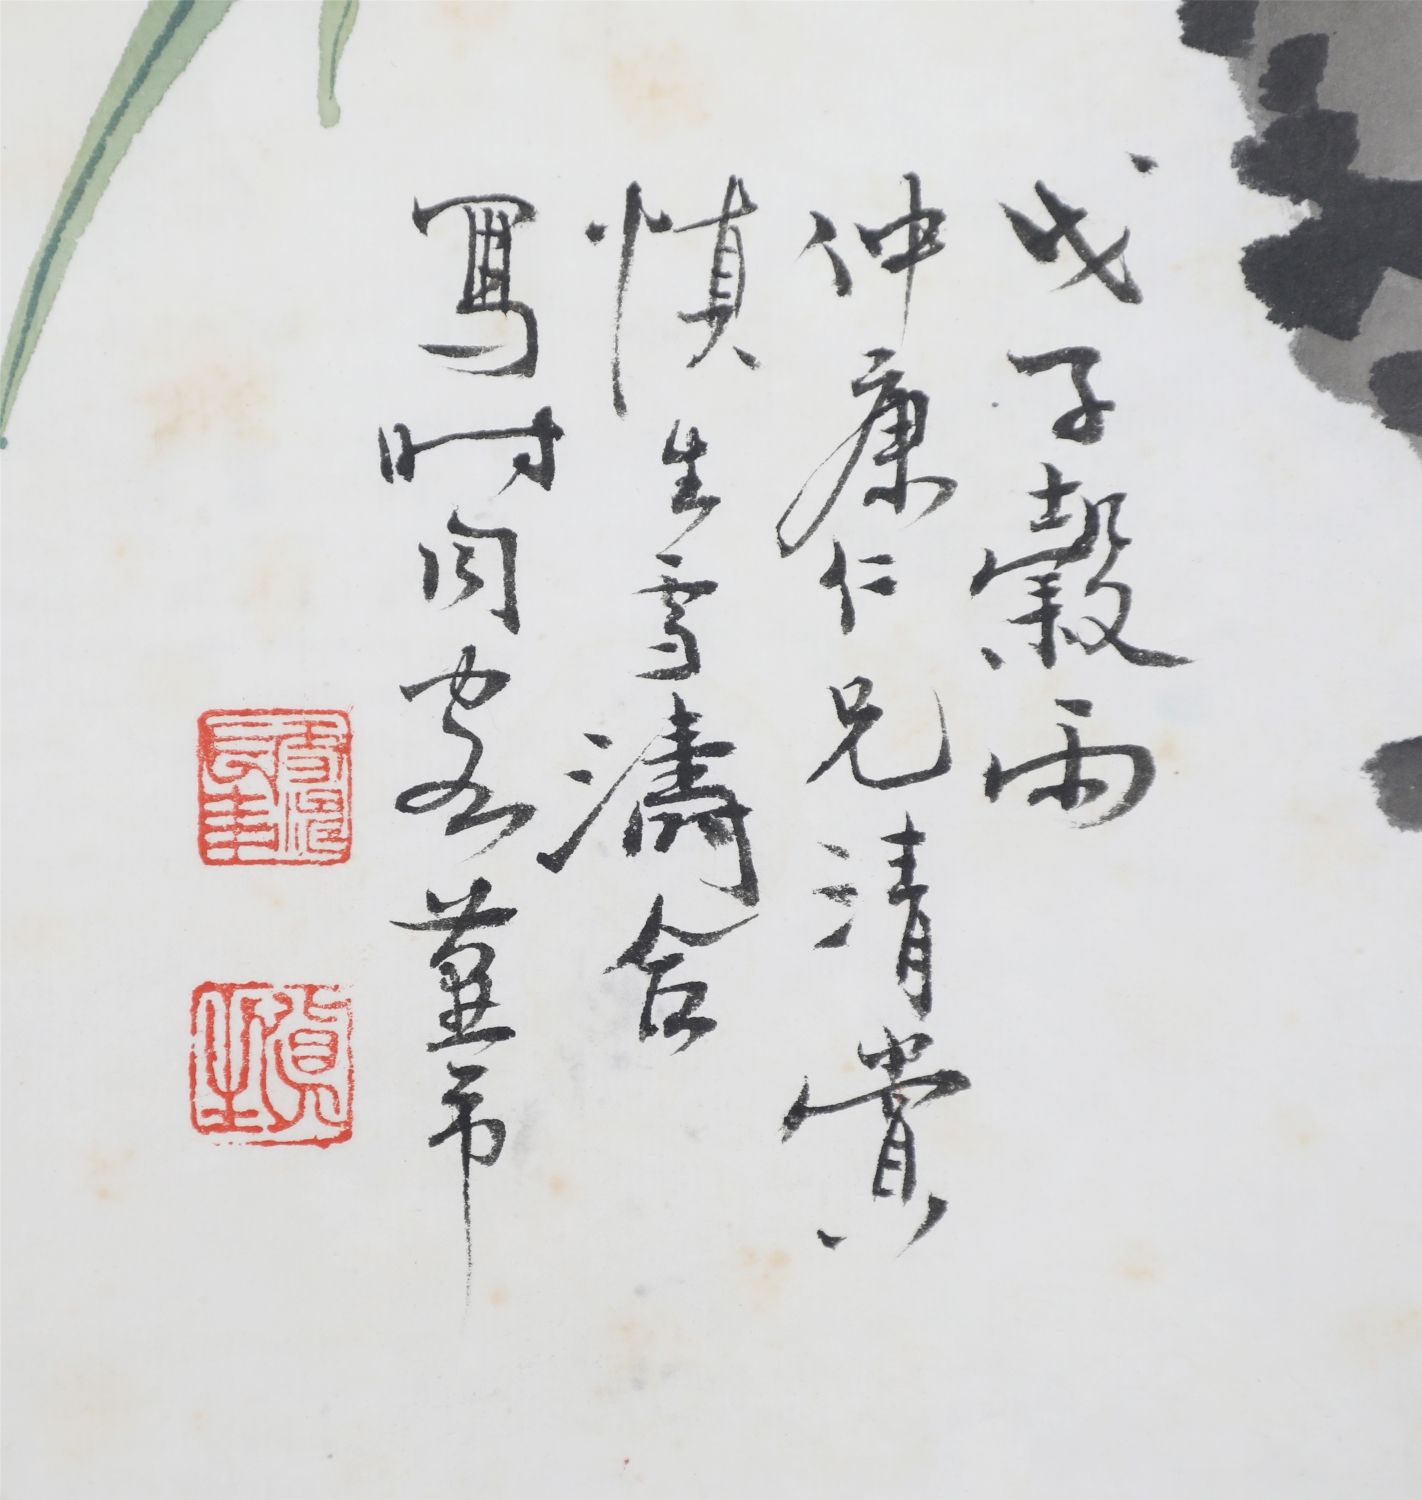 戊子穀雨
仲康仁兄清賞
慎生雪濤合
寫時同客燕市
慎生